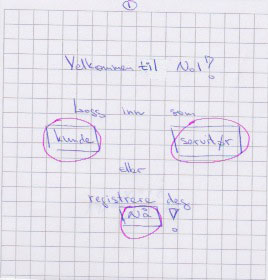 1
Velkommen til No1!
Logg inn som
kunde servitør
eller
registrere deg
Nå !